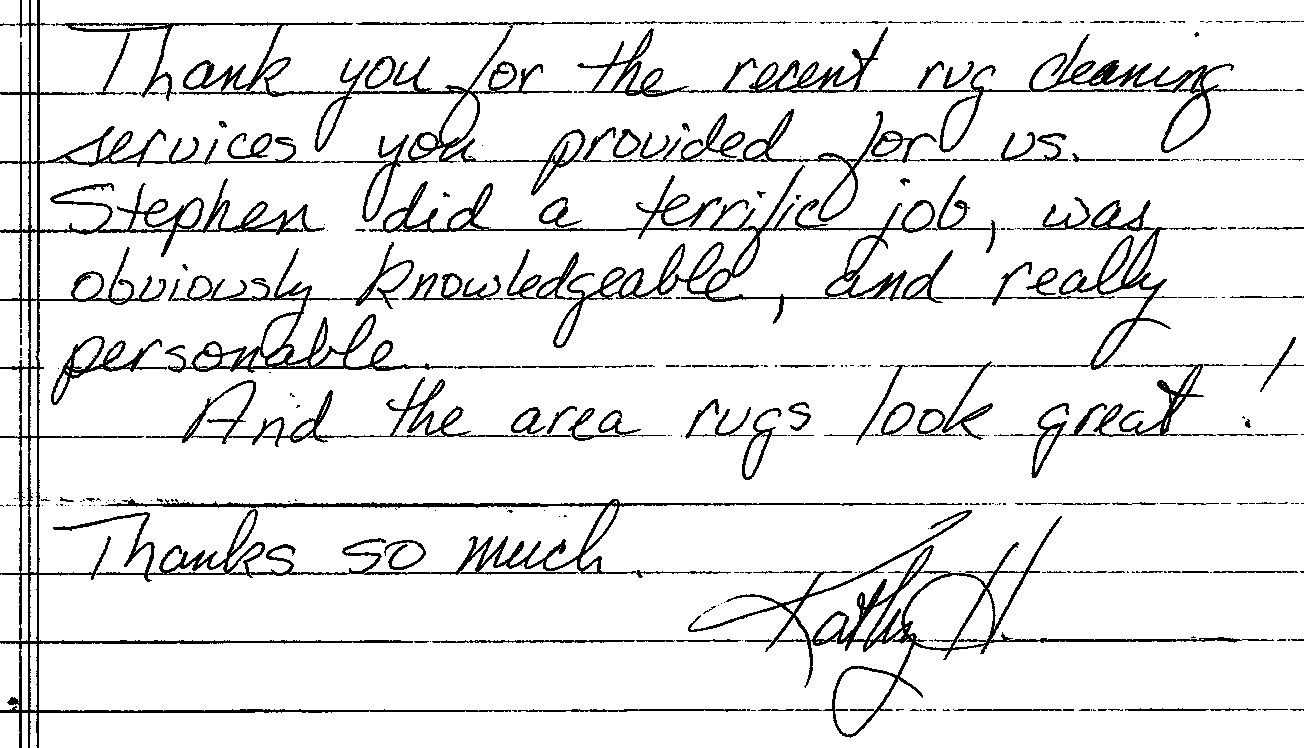 Thank you for the recent rug cleaning
services you provided for us.
Stephen did a terrific job, was
obviously knowledgeable, and really
personable.
And the area rugs look great!
Thanks so much.
Kathy H.